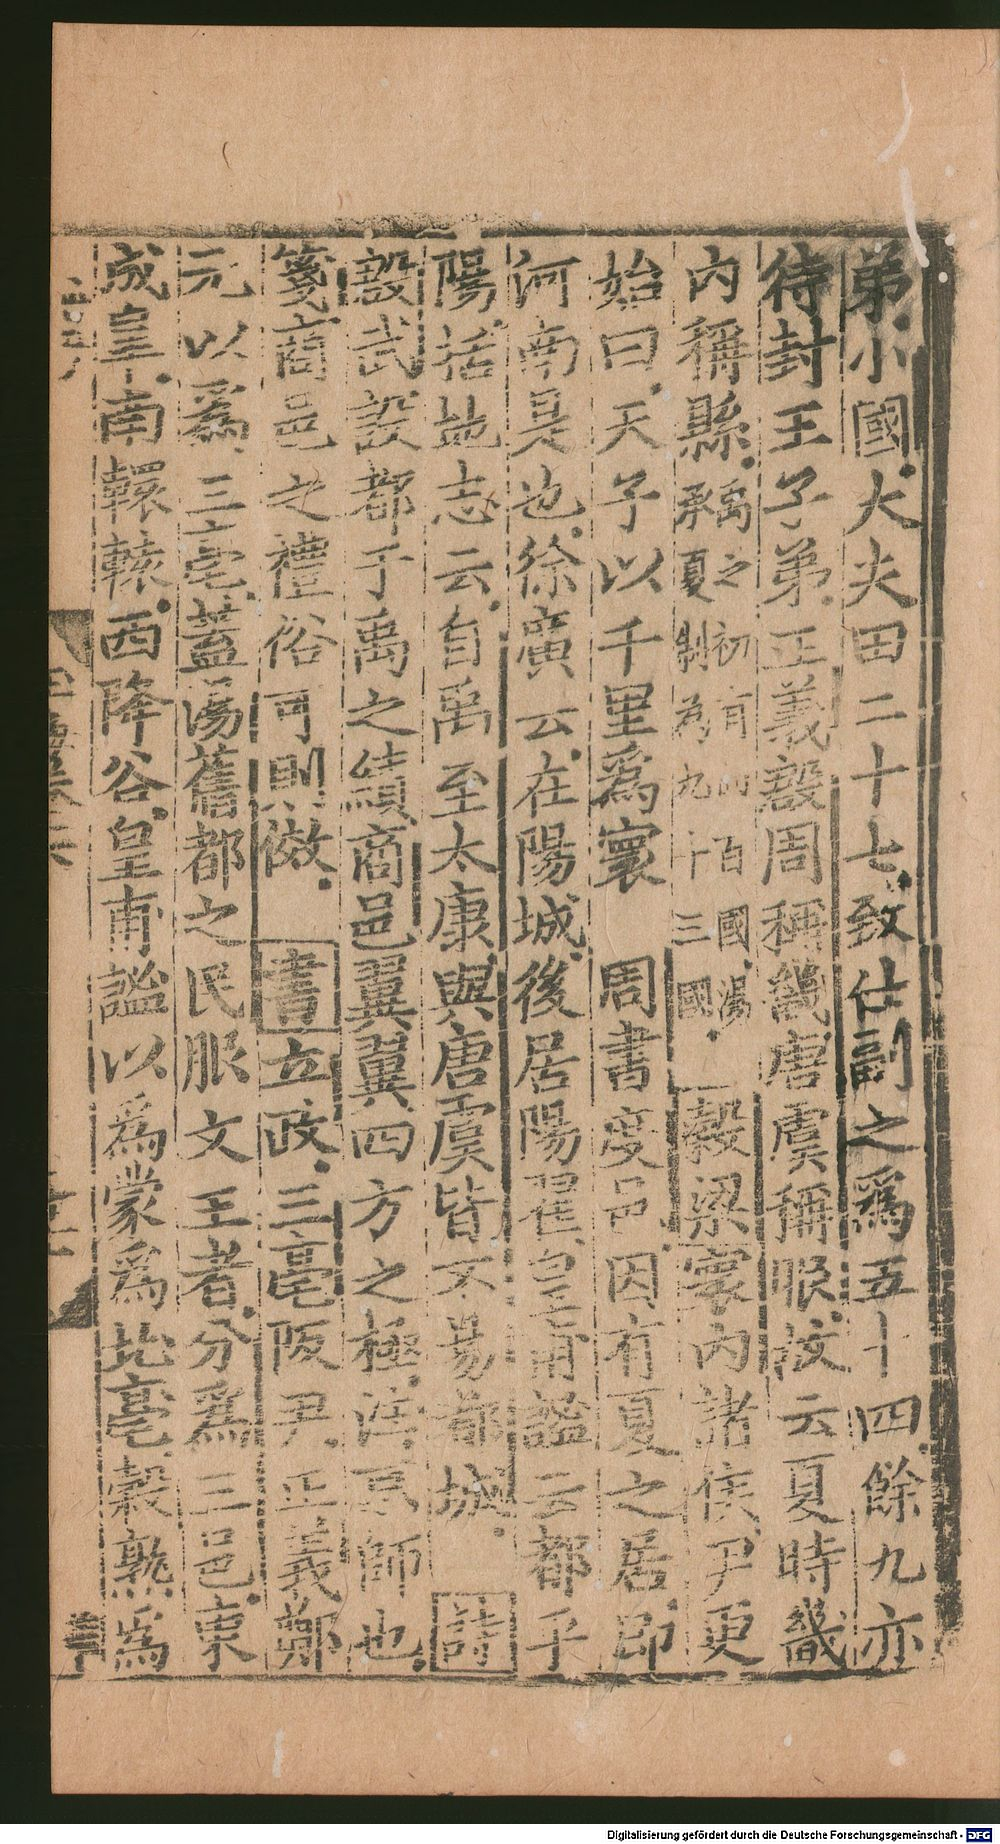 弟小國大夫田二十七致仕副之爲五十四餘九亦
待封王子弟正義殷周稱畿唐虞稱服按云夏時畿
內稱縣禹之初有萬百國湯
承夏制为九十三國穀梁寰内諸侯尹更
始曰天子以千里爲寰 周書度邑因有夏之居即
河南是也徐廣云在陽城後居陽翟皇甫謐云都平
陽括地志云自禹至太康與唐虞皆不易都城 詩
殷武設都于禹之績商邑翼翼四方之極 師也
箋商邑之禮俗可則傚 書立政三亳阪尹正義鄭
元以爲三亳蓋湯舊都之民服文王者分爲三邑東
成皋南轘轅西降谷皇甫謐以爲蒙爲北亳穀熟爲
Digitalisierung gefördert durch die Deutsche Forschungsgemeinschaft - DFG